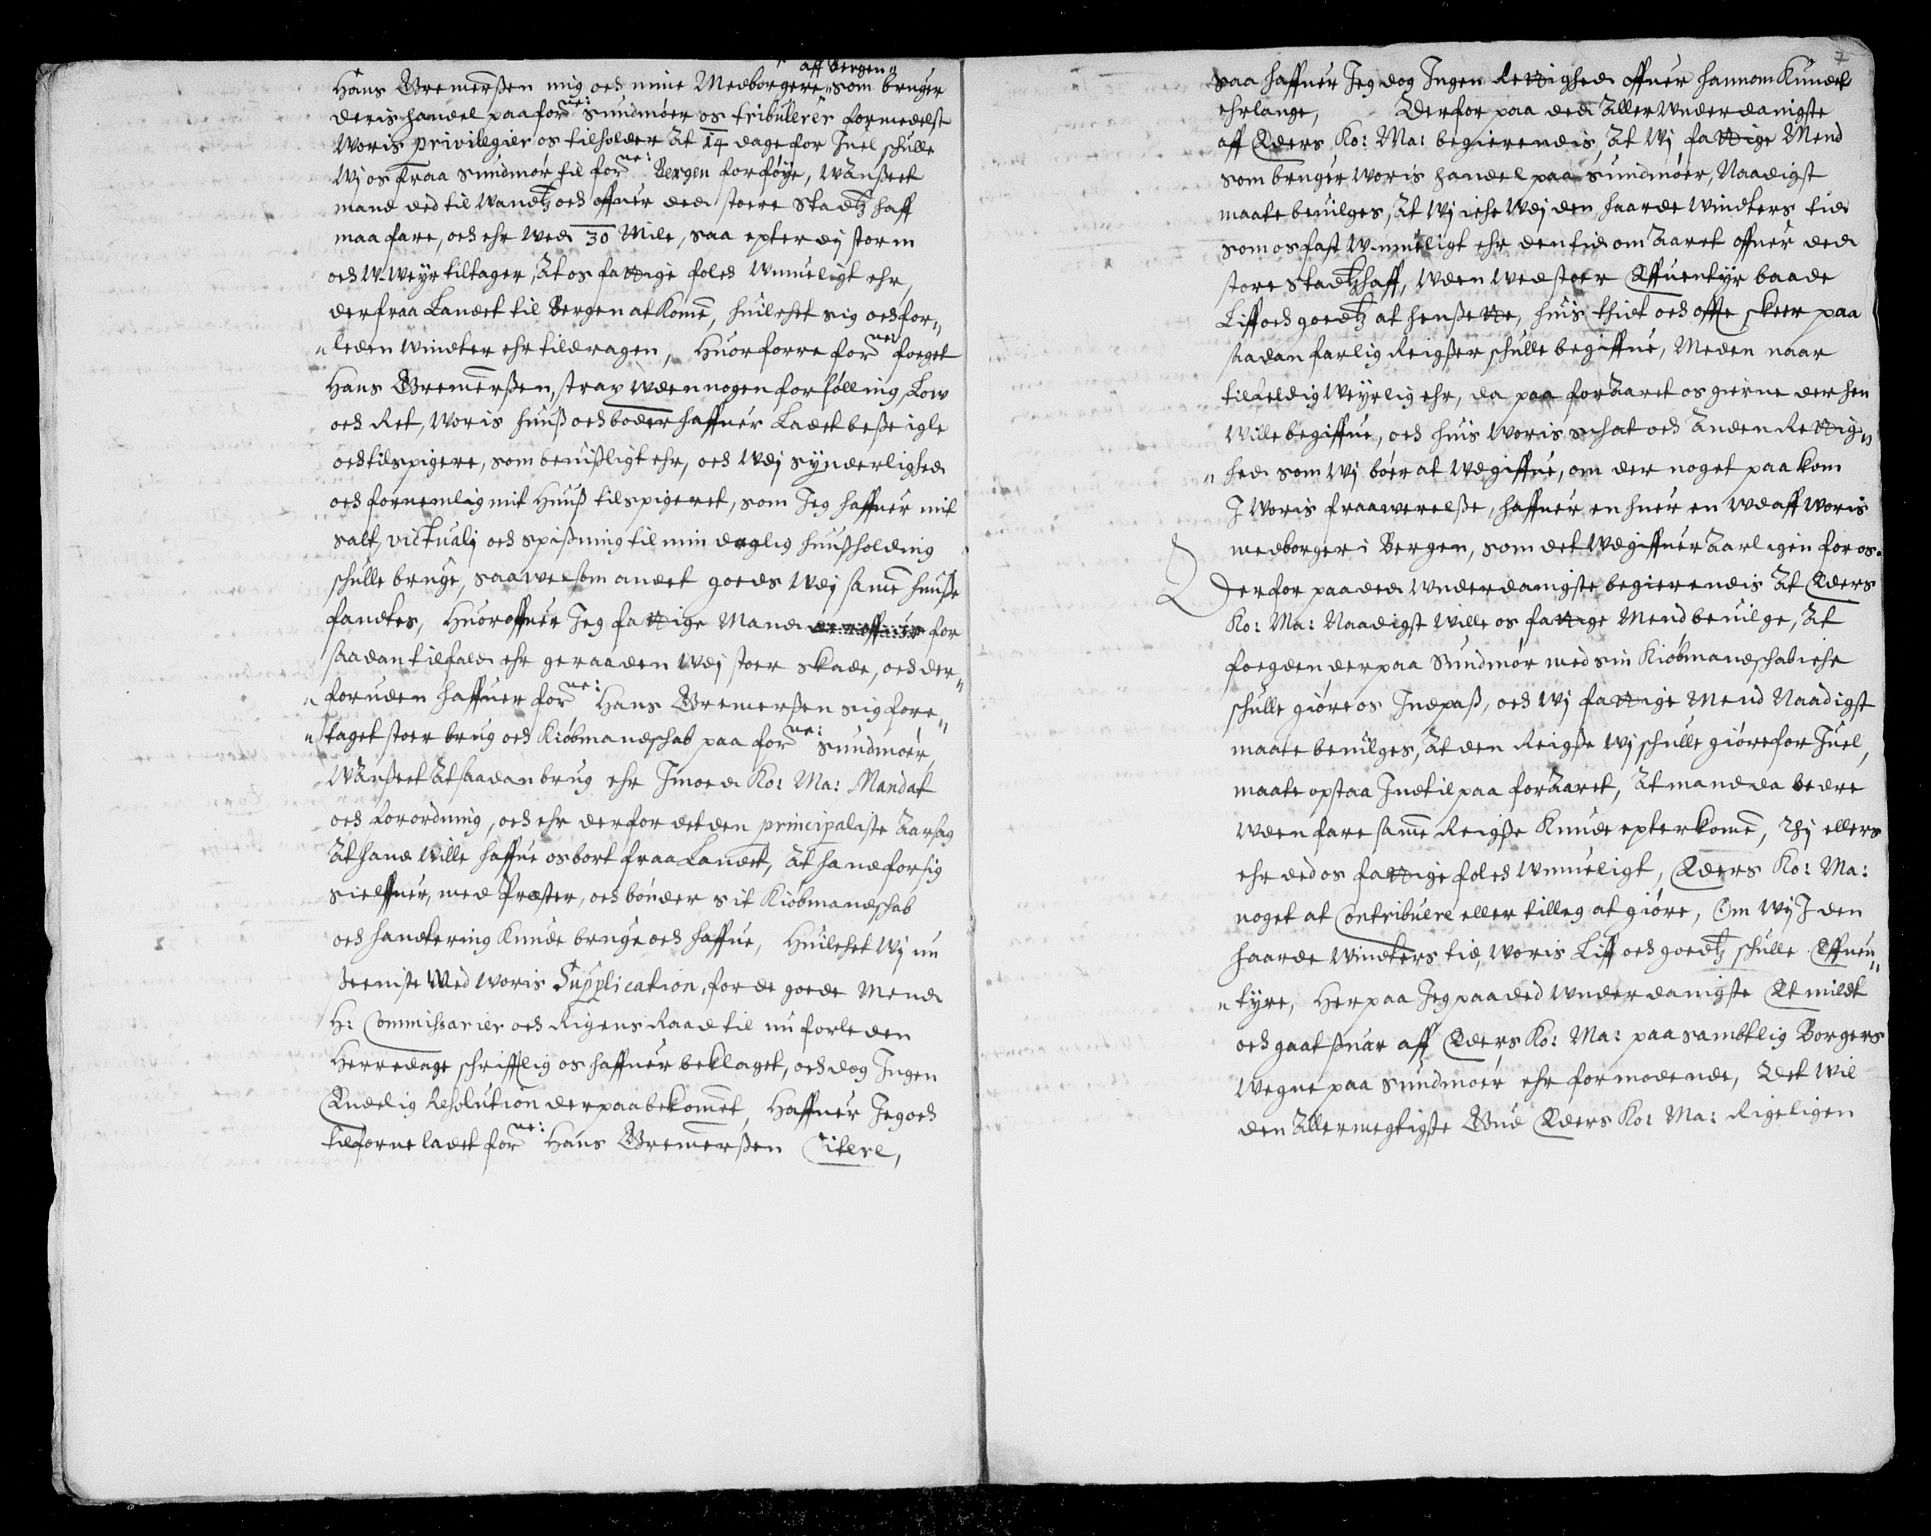 aff Bergen„
Hans Bremerßen mig och mine Medborgere, som bruger
deris handel paa forne: Sundmøer os tribulerer formedelst
Woris privilegier os tilholder At 14 dage for Juel schulle
Wj os fraa Sundmør til forne: Bergen forføye, Wanßeet
mand ded til Wandtz och offuer ded stoere Stadtz haff
maa fare, och ehr Wed 30 Mile, saa epterdj storm
och W-weyr tiltager, At os fattige folch Wmueligt ehr,
der fraa Landet til Bergen at kome, huilchet sig och for„
„leden Windter ehr tildragen, Huorforre forned foeget
Hans Bremerßen, strax uden nogen forfølling, Low
och Ret, Woris huuß och boder haffuer Ladet beßeigle
och tilspigere, som beuißligt ehr, och Wdj synderlighed
och fornemlig mit Huuß tilspigeret, som Jeg haffuer mit
salt, victualj och spißning til min daglig huußholding
schulle bruge, saawelsom andet goeds Wdj same huuße
fandtes, Huoroffuer Jeg fattige Mand for
saadan tilfald ehr geraaden Wdj stoer skade, och der„
„foruden haffuer forne: Hans Bremerßen sig fore„
„taget stoer brug och Kiøbmandschab paa forne: Sundmøer,
Wanßeet At saadan brug ehr Jmoed Ko: Ma: Mandat
och forordning, och ehr derfor det den principaliste Aarsag
At hand Wille haffue os bort fraa Landet, At hand for sig
sielffuer, med Præster, och bønder sit Kiøbmandschab
och handtering Kunde bruge och haffue, Huilchet Wj nu
seeniste Wed Woris Supplication, for de goede Mend
H: Commissarier och Rigens Raad til nu forleden
Herredage schrifftlig os haffuer beklaget, och dog Jngen
Endelig Resolution derpaa bekomet, Haffuer Jeg och
tilforne ladet forne: Hans Bremerßen Citere,
7
saa haffuer Jeg dog Jngen Rettighed offuer hannom Kundet
ehrlange, Derfor paa ded Aller Wnderdanigste
aff Eders Ko: Ma: begierendis, At Wj fattige Mend
som bruger Woris handel paa Sundmøer, Naadigst
maate beuilges, At Wj iche Wdj den haarde Windters tid
som os fast W-mueligt ehr den tid om Aaret offuer ded
store Stadtzhaff, Uden Wed stoer Effuentyr baade
Liff och goedtz at henßette, huis thidt och offte skeer paa
saadan farlig Reigßer schulle begiffue, Meden naar
tilfeldig Weyrlig ehr, da paa for Aaret os gierne derhen
Wille begiffue, och huis Woris schat och Anden Rettig„
„hed som Wj bøer at Wdgiffue, om der noget paa kom
J Woris fraawerelße, haffuer en huer en Wdaff Woris
medborger i Bergen, som det Wdgiffuer Aarligen for os.
Derfor paa ded Wnderdanigste begierendis At Eders
Ko: Ma: Naadigst Wille os fattige Mend beuilge, At
foegden der paa Sundmør med sin Kiøbmandschab iche
schulle giøre os Jndpaß, och Wj fattige Mend Naadigst
maate beuilges, At den Reigße Wj schulle giøre for Juel,
maate opstaa Jndtil paa for Aaret, At mand da bedre
Uden fare same Reigße Kunde epterkome, Thj ellers
ehr ded os fattige folch Wmueligt, Eders Ko: Ma:
noget at Contribuere eller tilleg at giøre, Om Wj J den
haarde Windters tid, Woris Liff och goedtz schulle Effuen„
„tyre, Herpaa Jeg paa ded Wnderdanigste Et mildt
och gaat suar aff Eders Ko: Ma: paa sambtlig Borgers
Wegne paa Sundmøer ehr formodende, Det Wil
den Allermegtigste Gud Eders Ko: Ma: Rigeligen